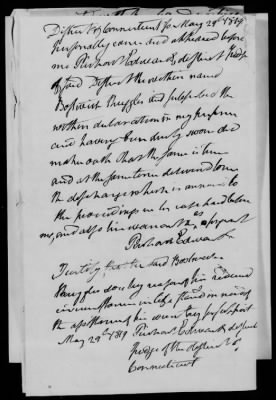 District of Connecticut ss May 29th 1819
Personally came and appeared before
me Pierpont Edwards district Judge
of said District the within named
Bostwick Ruggles and subscribed the
within declaration in my presence
and having been duly sworn did
make oath that the same is true
and at the same time delivered to me
the discharge which is annexed to
the proceedings in his case had before
me, and also his warrant as
Pierpont Edwards
I certify that the said Bostwick
Ruggles does by reason of his reduced
circumstances in life stand in need
of the assistance of his country for support
May 29th 1819 Pierpont Edwards district
Judge of the district of
Connecticut